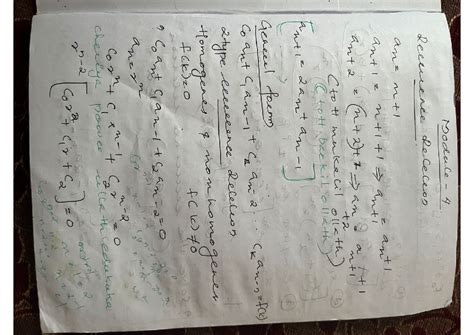 Module - 4
Recurrence Relation
an = n+1
an+1 = n+1+1 ⇒ an+1 = an+1
an+2 = (n+2)+1 ⇒ an+2 = an+1 + 1
(tott mukalil ollath)
(tott
an+1 = 2an + an-1
General form
C0an + C1an-1 + C2an-2 ... Ckan-k = f(k)
2 type Relation
Homogenes & non homogenes
f(k)=0 f(k) ≠ 0
C0an + C1an-1 + C2an-2 = 0
an = r^n
C0r^n + C1r^n-1 + C2r^n-2 = 0
cheriya power
r^n-2 [C0r^2 + C1r + C2] = 0